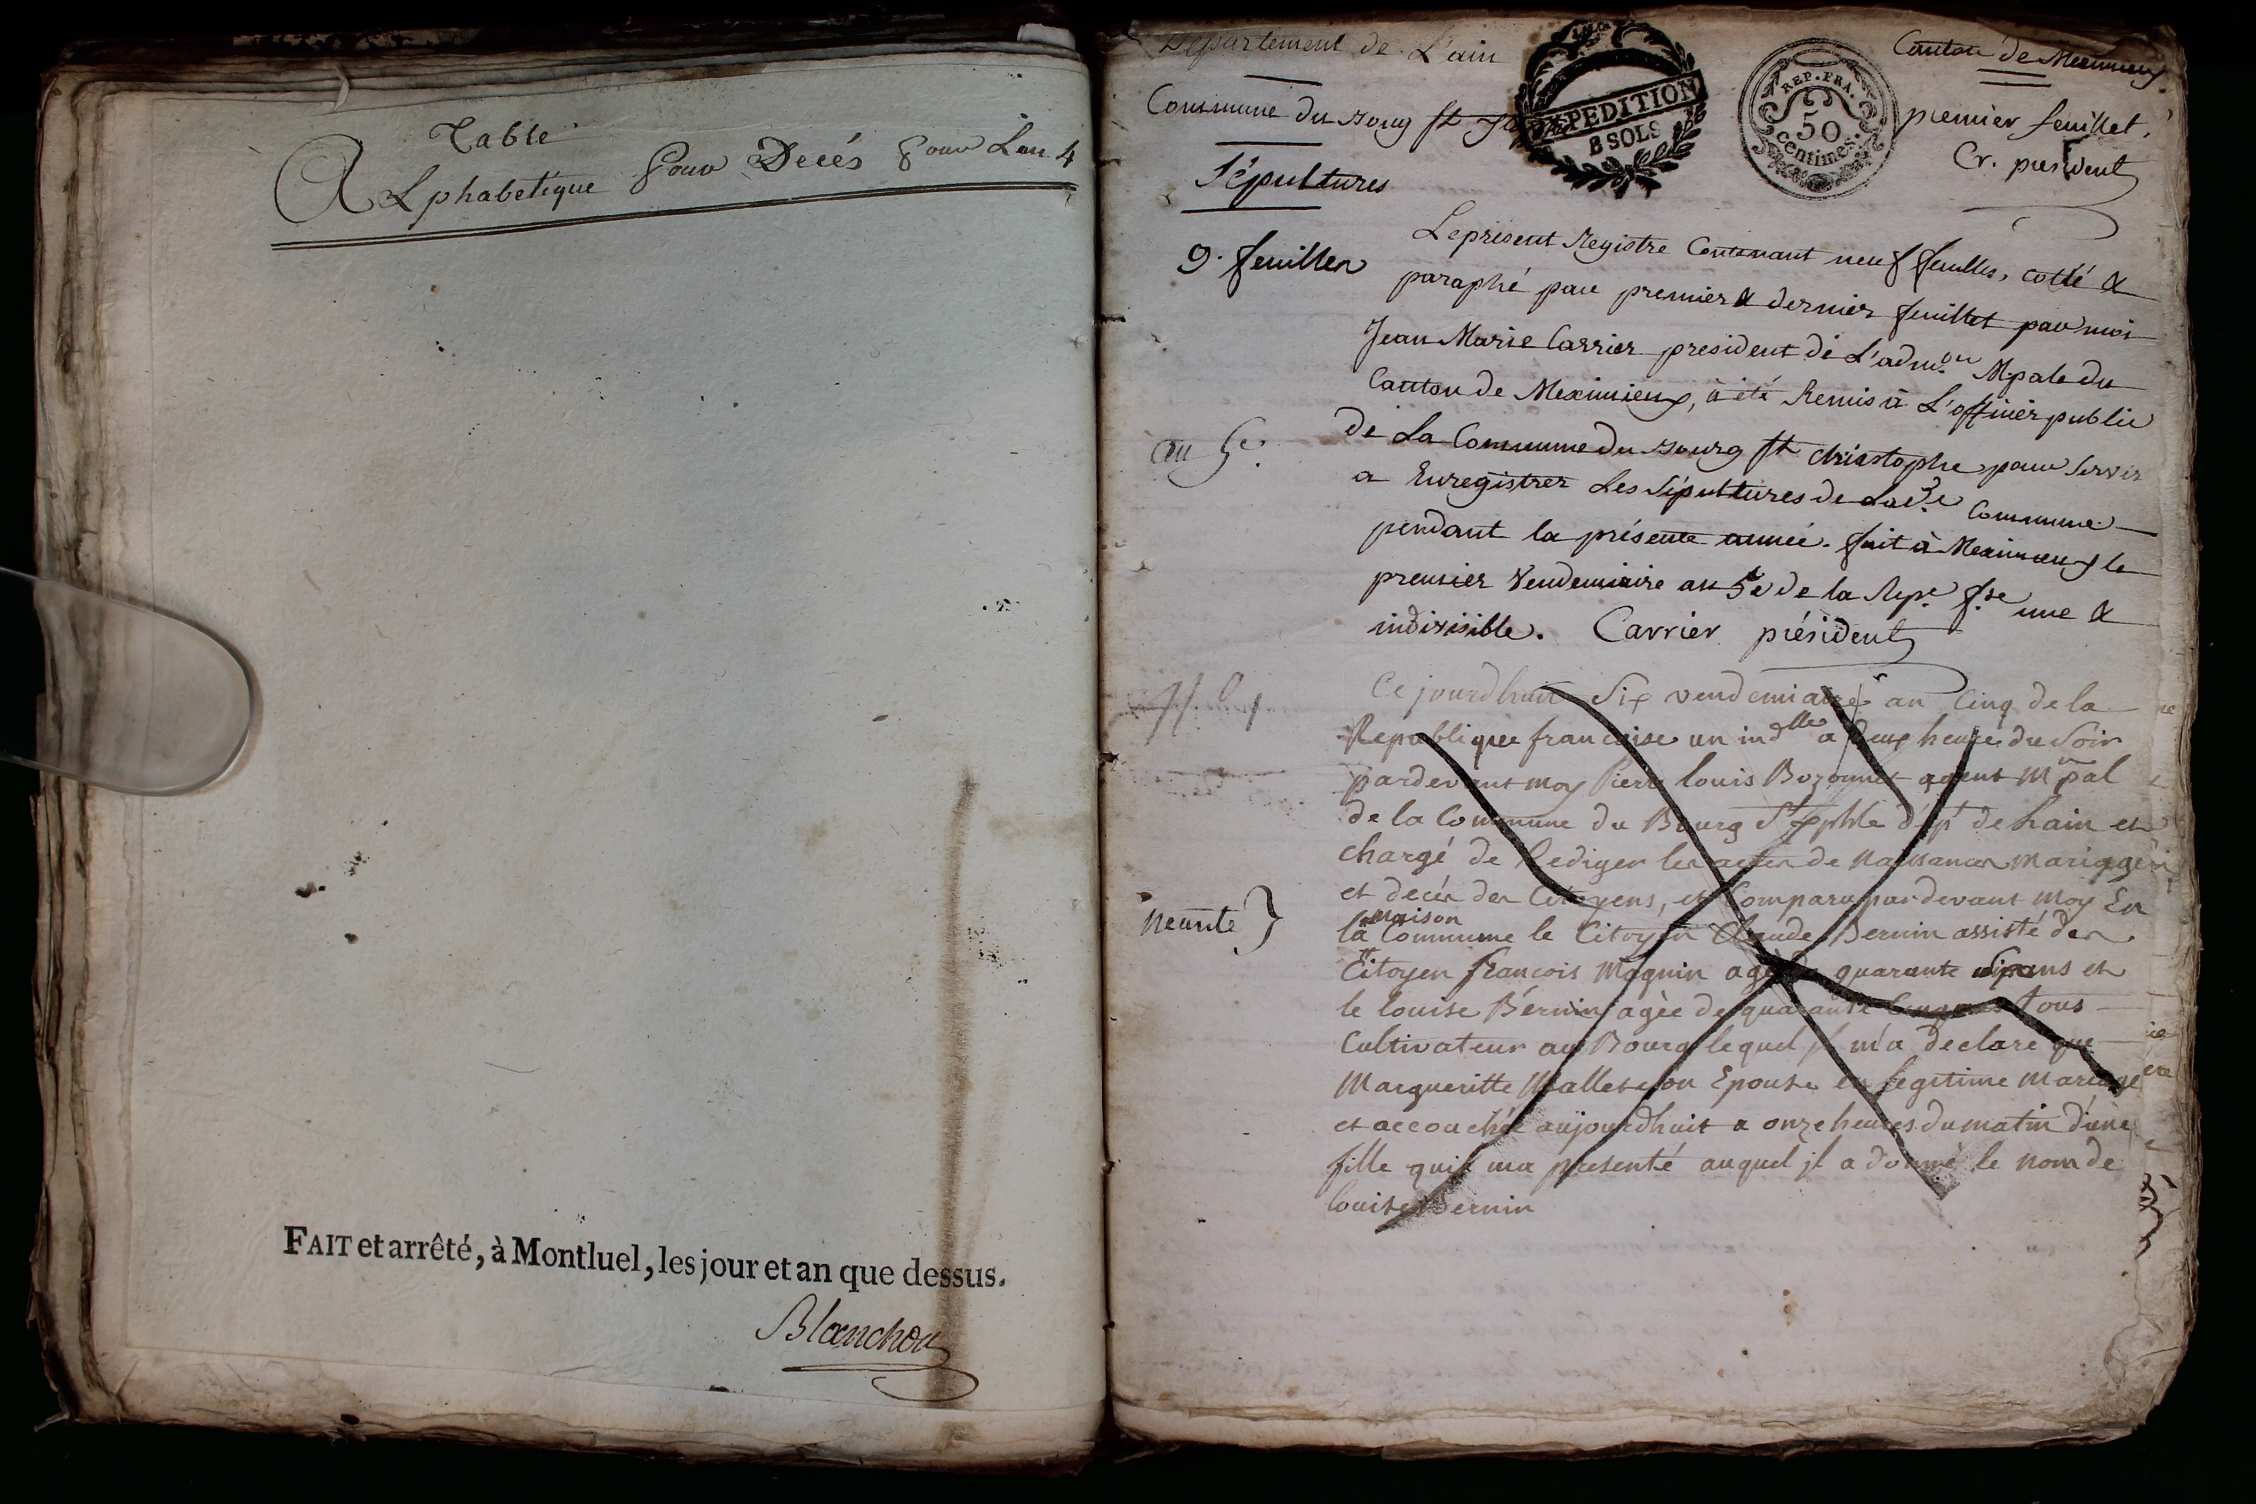 Table
Alphabetique pour Decés pour Lan 4
FAIT et arrêté, à Montluel, les jour et an que dessus.
Blanchon
Departement de L'ain
Canton de Meximieux
Commune du Bourg st
EXPEDITION
8 SOLS
REP. FRA.
50
Centimes.
premier feuillet.
Cr. president
Sépultures
9. feuilles
Le présent Registre Contenant neuf feuilles, cotté &
paraphé par premier & dernier feuillet par moi
Jean Marie Carrier president de L'adm.on Mpale du
Canton de Meximieux, à été Remis à L'officier public
de La Commune du Bourg st christophe pour servir
an 5e.
a Enregistrer Les Sépultures de Lad.te Commune
pendant la présente année. fait à Meximieux le
premier Vendemiaire an 5e de la Rep.e f.se une &
indivisible. Carrier président
Ce jourdhuit Six vendemiaire an Cinq de la
Republique francaise un ind.lle a deux heures du Soir
pardevant moy Pierre louis Bozonnet agent M.pal
de la Commune du Bourg St Xphle dép.t de Lain et
chargé de Rediger les actes de Naissances mariages
et decés des Citoyens, et Comparu pardevant moy En
neante }
la maison Commune le Citoyen Claude Bernin assisté des
Citoyen francois Magnin agé de quarante six ans et
le louise Bernin agée de quarante Cinq ans tous
Cultivateur au Bourg lequel m'a declare que
Margueritte Mallet son Epouse en legitime Mariage
et accouchée aujourdhuit a onze heures du matin d'une
fille quil ma presenté auquel jl a donné le nom de
louise Bernin